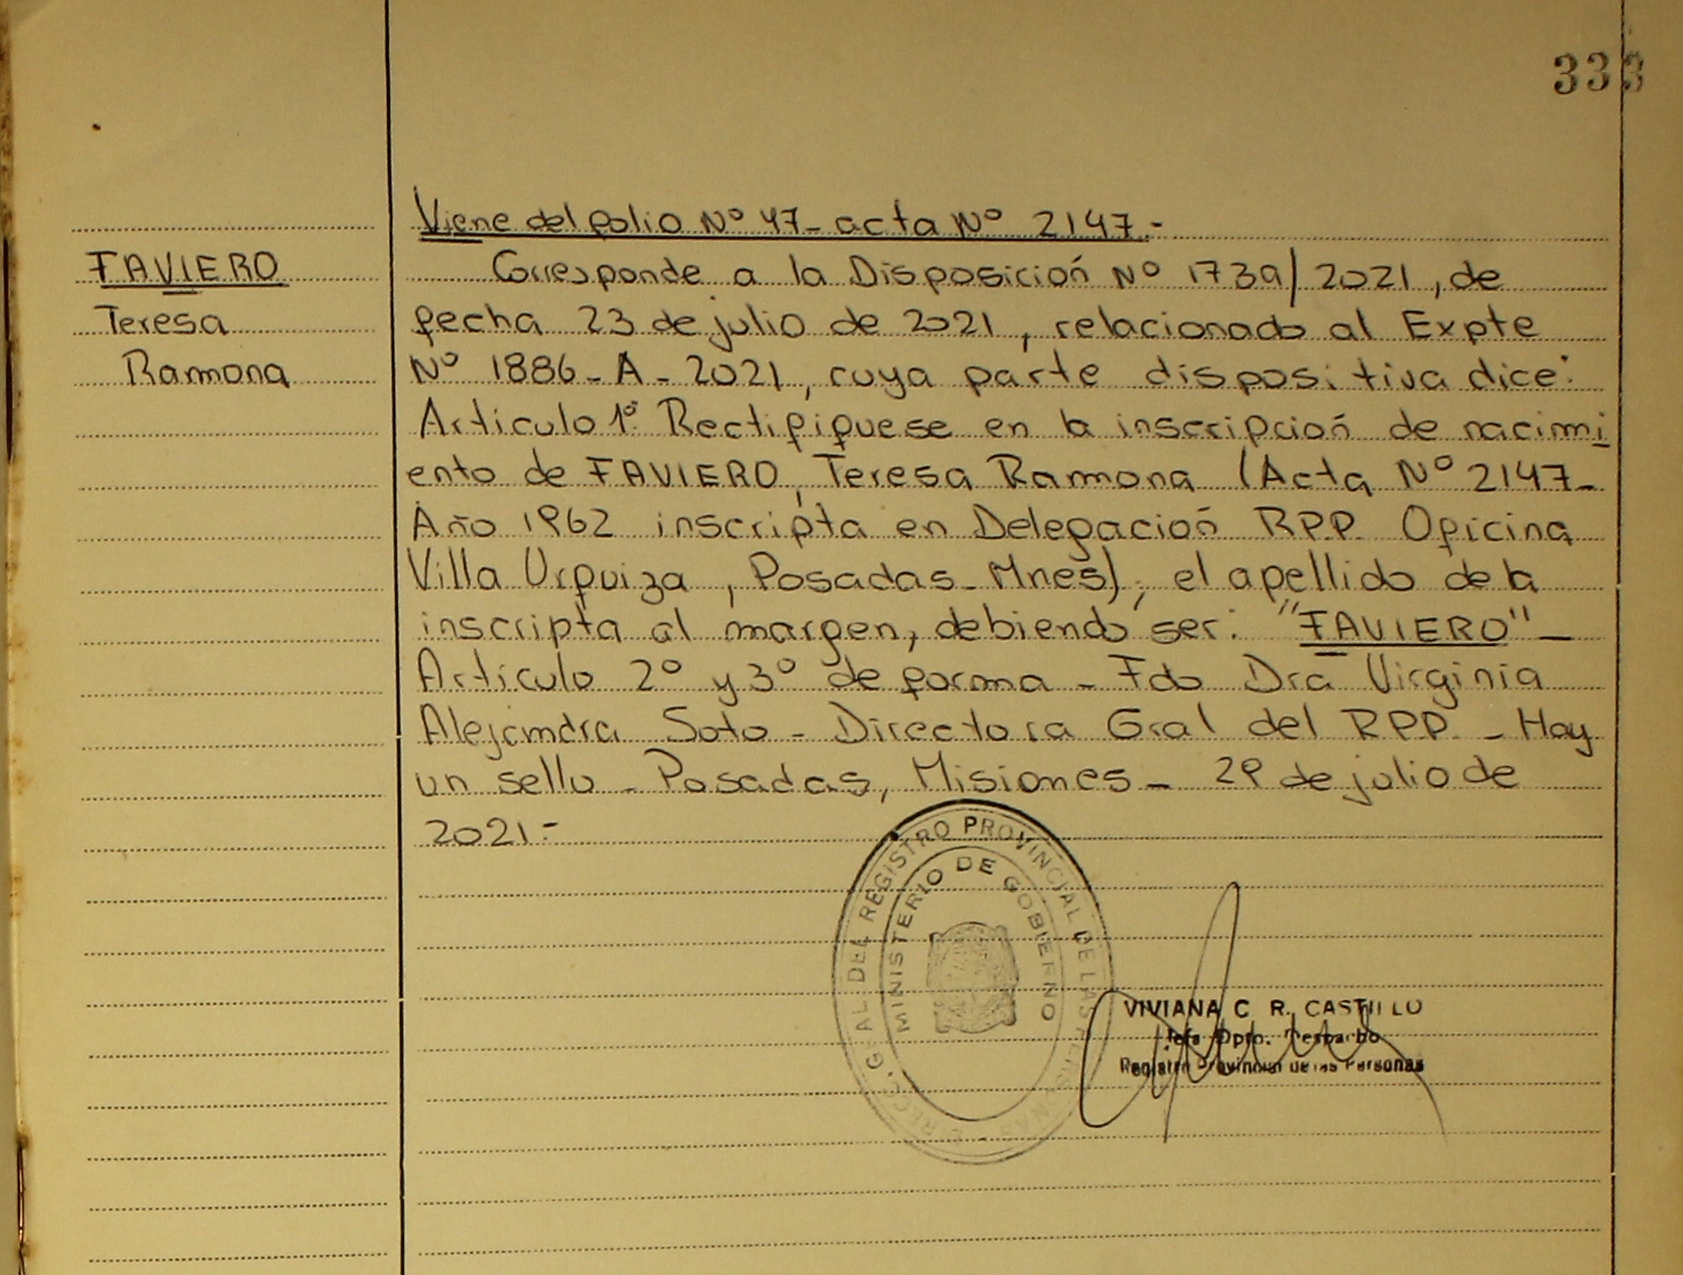 333
Viene del folio Nº 47- acta Nº 2147.-
FAVIERO
Teresa
Ramona
Corresponde a la Disposición Nº 1739/2021, de
fecha 23 de julio de 2021, relacionado al Expte
Nº 1886-A-2021, cuya parte dispositiva dice:
Articulo 1º: Rectifiquese en la inscripción de nacimi
ento de FAVIERO, Teresa Ramona (Acta Nº 2147-
Año 1962 inscripta en Delegación RPP. Oficina
Villa Urquiza, Posadas-Mnes), el apellido de la
inscripta al margen, debiendo ser: "FAVIERO"-
Artículo 2º y 3º de forma - Fdo Dra Virginia
Alejandra Soto - Directora Gral del RPP - Hay
un sello - Posadas, Misiones - 29 de julio de
2021.-
DIRECC. GRAL DEL REGISTRO PROVINCIAL DE LAS PERSONAS
MINISTERIO DE GOBIERNO
VIVIANA C. R. CASTILLO
Jefa Dpto. Despacho
Registro Provincial de las Personas